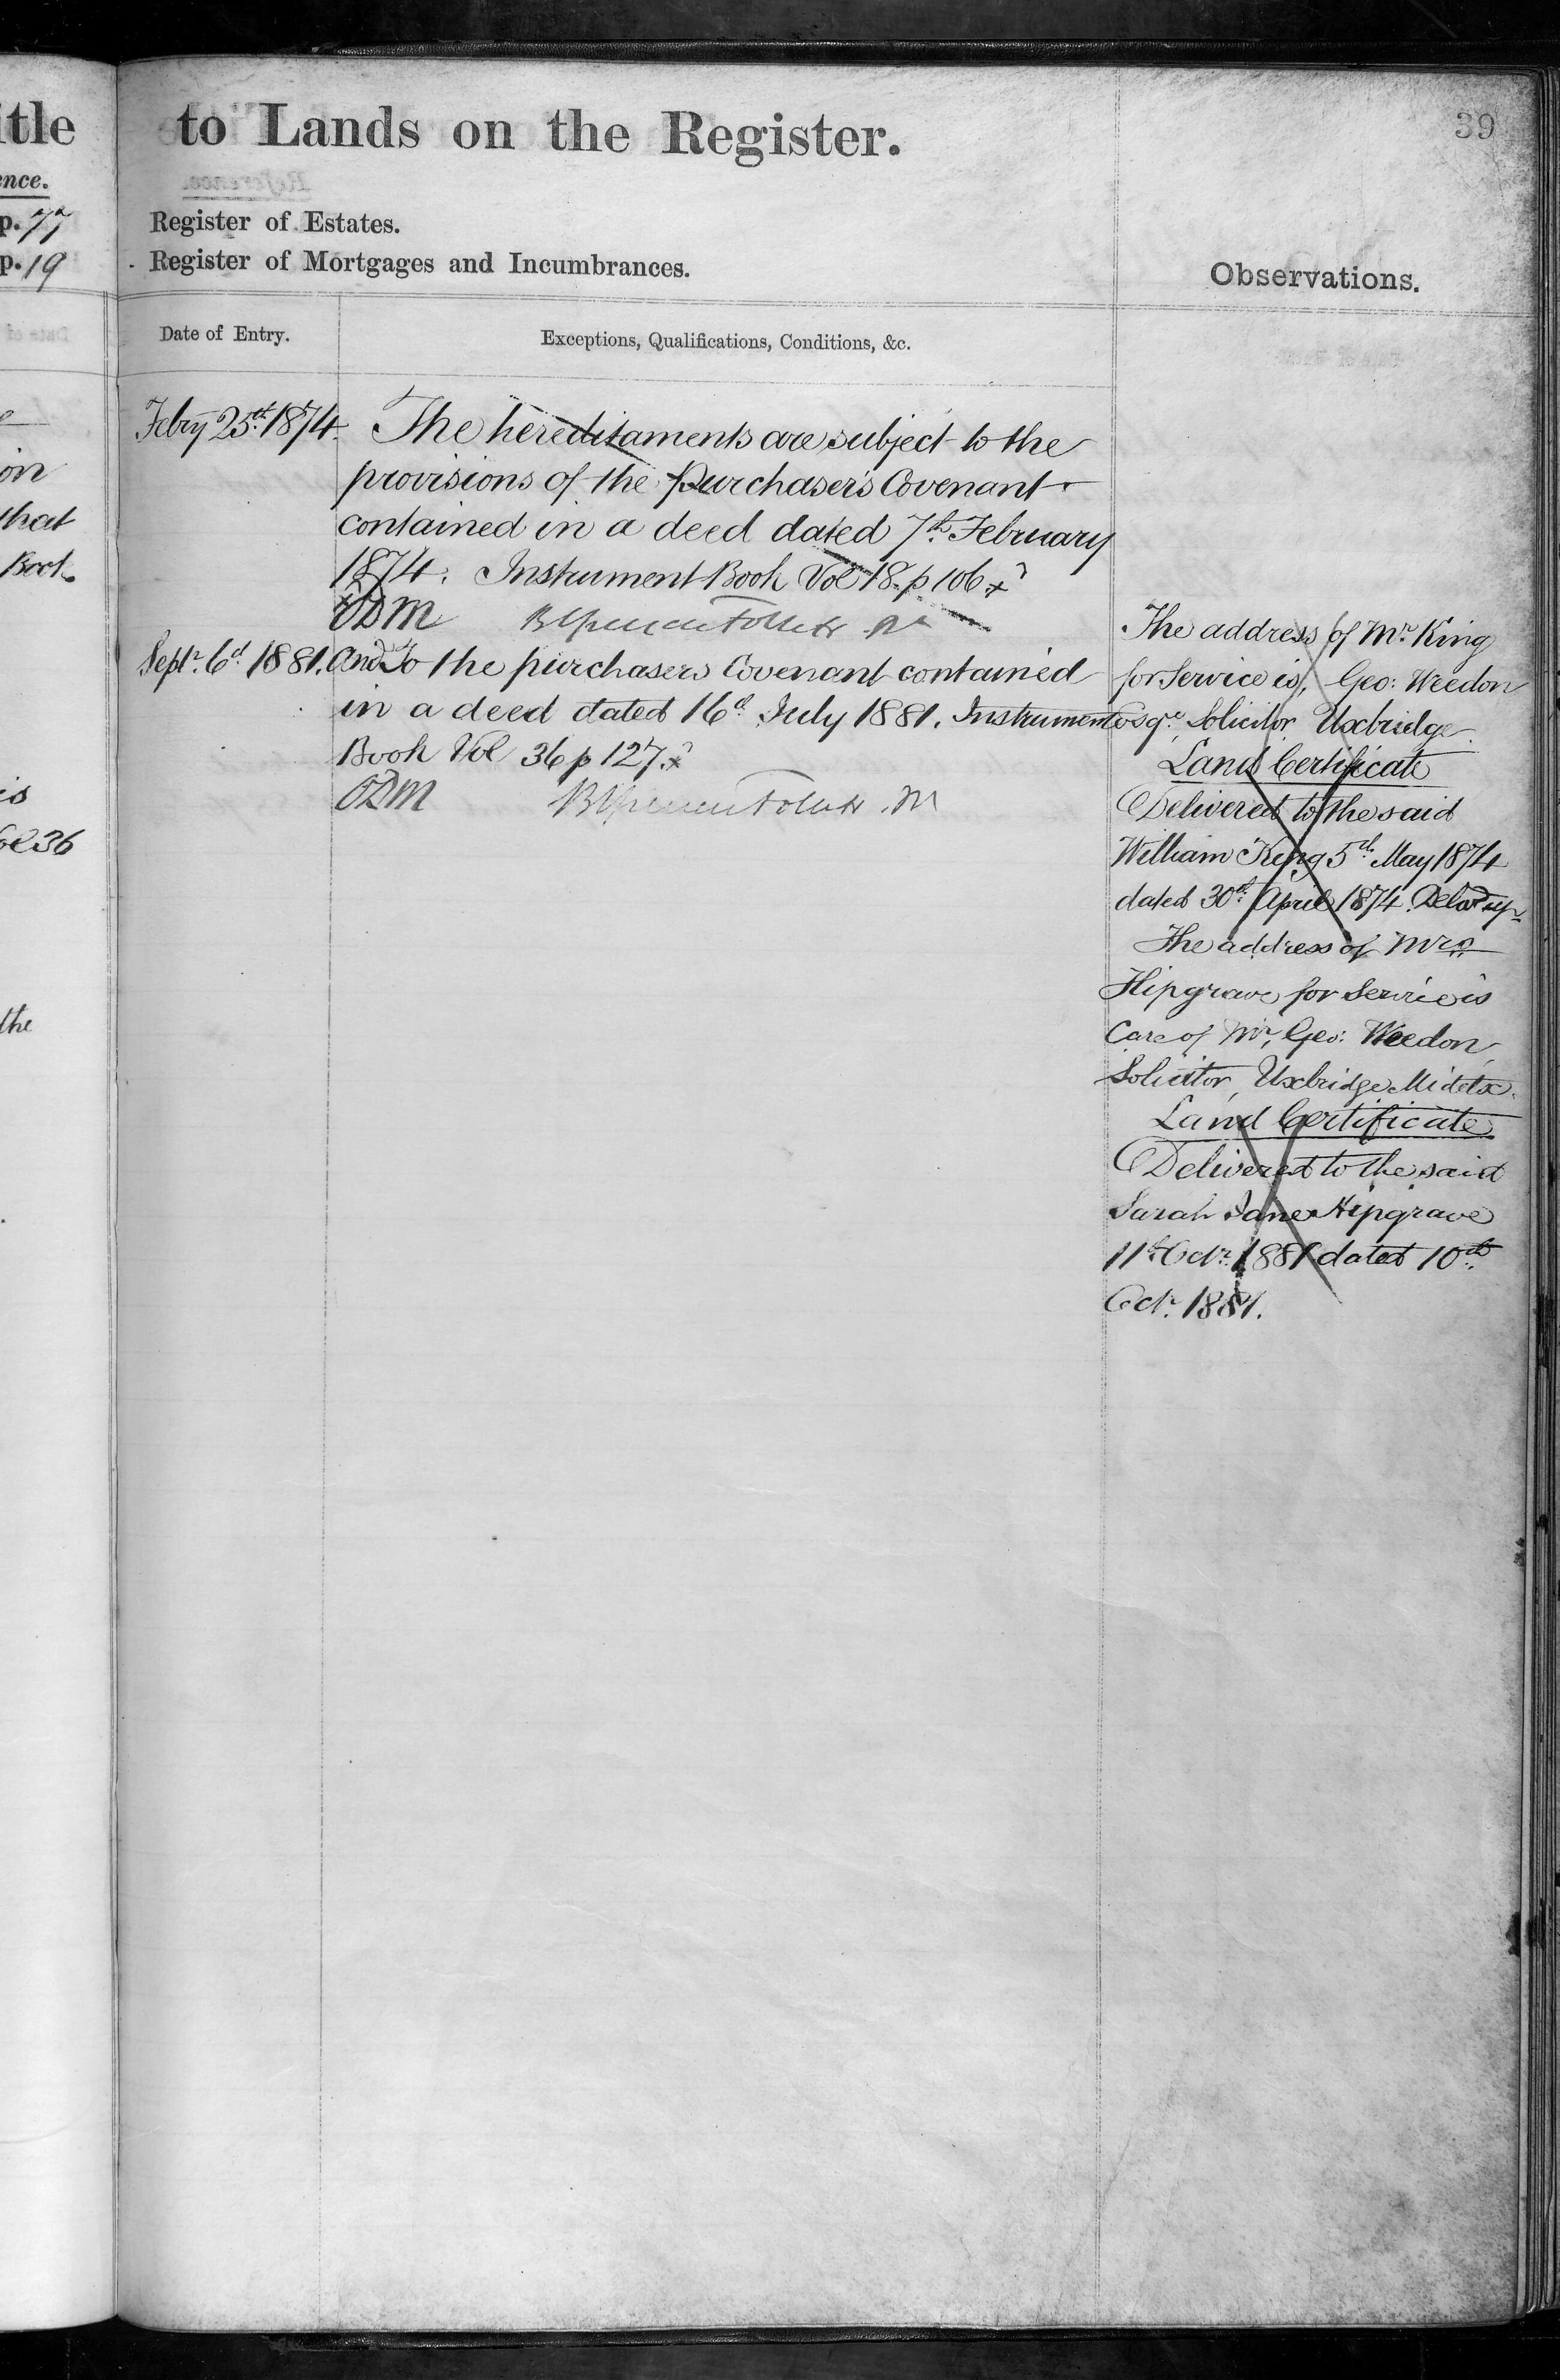 itle
ence.
p. 77
p. 19
on
that
Book
is
36
the
to Lands on the Register.
39
Register of Estates.
Register of Mortgages and Incumbrances.
Observations.
Date of Entry.
Exceptions, Qualifications, Conditions, &c.
Febry 25th 1874.
The hereditaments are subject to the
provisions of the Purchaser's Covenant
contained in a deed dated 7th February
1874. Instrument Book Vol 18. p 106 x
ODM
Septr. 6th 1881.
And To the purchasers Covenant contained
in a deed dated 16th July 1881. Instrument
Book Vol 36 p 127. x
ODM
The address of Mr. King
for Service is, Geo: Weedon
Esqre. Solicitor Uxbridge.
Land Certificate
Delivered to the said
William King 5th May 1874
dated 30th April 1874.
The address of Mrs.
Hipgrave for Service is
Care of Mr. Geo: Weedon,
Solicitor, Uxbridge Middx.
Land Certificate
Delivered to the said
Sarah Jane Hipgrave
11th Octr. 1881 dated 10th
Octr. 1881.